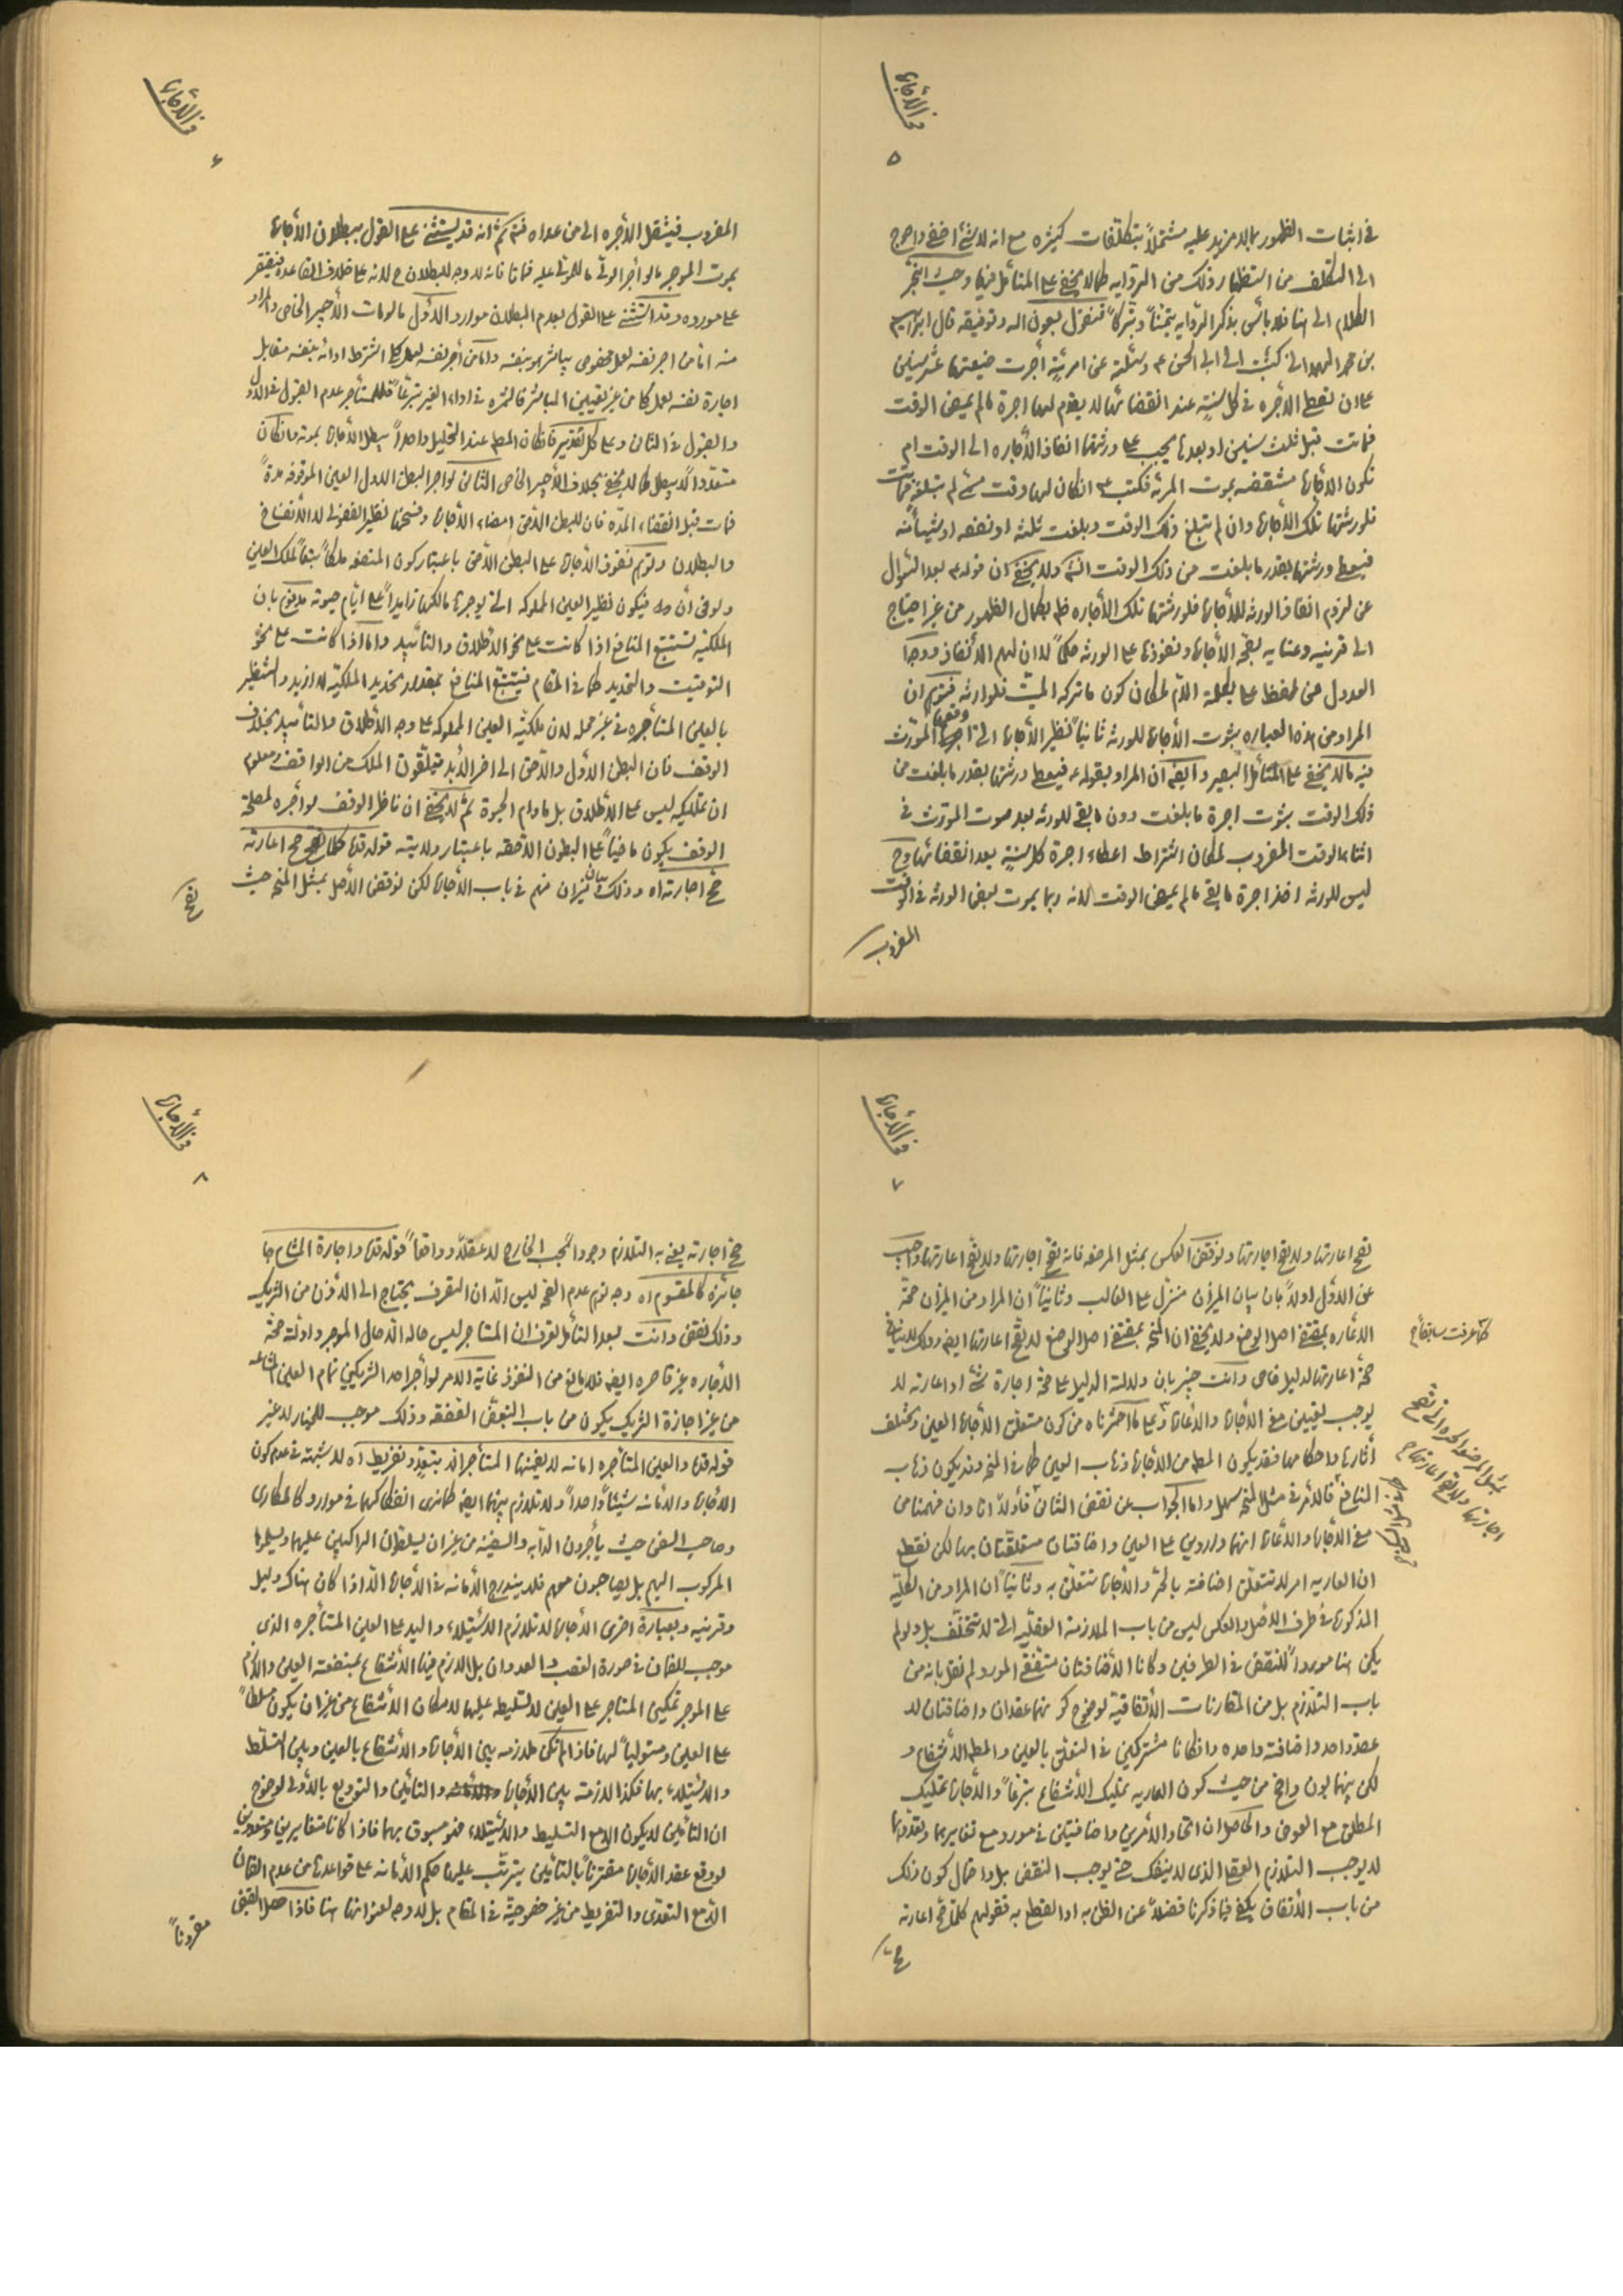 فی الأجارة
۵
فی اثبات الظهور بما لا مزید علیه مشتملاً بتکلفات کثیره مع انه لا شئ اخفی واحوج
الی التکلف من استظهار ذلک من الروایه کما لا یخفی علی المتأمل فیها وحیث انجرّ
الکلام الی هنا فلا بأس بذکر الروایه تیمّناً وتبرّکاً فنقول بعون الله وتوفیقه قال ابراهیم
بن محمد الهمدانی کتبت الی ابی الحسن ع وسئلته عن امرئة أجرت ضیعتها عشر سنین
علی ان تعطی الاجره فی کل سنة عند انقضائها لا یقدم لها اجرة ما لم یمض الوقت
فماتت قبل ثلث سنین او بعدها یجب علی ورثتها انفاذ الأجاره الی الوقت ام
تکون الأجارة منتقضه بموت المرئه فکتب ع ان کان لها وقت مسمّی لم تبلغه فماتت
فلورثتها تلک الأجارة وان لم تبلغ ذلک الوقت وبلغت ثلثه او نصفه او شیئاً منه
فیعطی ورثتها بقدر ما بلغت من ذلک الوقت انتهی ولا یخفی ان قوله ع بعد السؤال
عن لزوم انفاذ الورثه للأجارة فلورثتها تلک الأجاره فی کمال الظهور من غیر احتیاج
الی قرینه وعنایه بصحّة الأجارة ونفوذها علی الورثه حکماً لا ان لهم الأنفاذ ووجه
العدول عن لفظ علی بکلمة اللام لمکان کون ما ترکه المیّت فلوارثه فتوهم ان
المراد من هذه العباره ثبوت الأجارة للورثه ثانیاً نظیر الأجارة التی اجرها المورّث
فیه ما لا یخفی علی المتأمل البصیر وایضاً ان المراد بقوله ع فیعطی ورثتها بقدر ما بلغت من
ذلک الوقت ثبوت اجرة ما بلغت دون ما بقی للورثه بعد موت المورّث فی
اثناء الوقت المضروب لمکان اشتراط اعطاء اجرة کل سنة بعد انقضائها وح
لیس للورثه اخذ اجرة ما بقی ما لم یمض الوقت لانه ربما یموت بعض الورثه فی الوقت
المضروب
فی الأجارة
۶
المضروب فینتقل الأجره الی من عداه فتم ثم انه قد یستثنی علی القول ببطلان الأجارة
بموت الموجر ما لو أجر الولی مال المولّی علیه فمات فانه لا وجه للبطلان ح لانه علی خلاف القاعدة فیقتصر
علی مورده وقد استثنی علی القول بعدم البطلان موارد الاوّل ما لو مات الأجیر الخاص والمراد
منه اما من اجر نفسه لعمل مخصوص یباشر بنفسه واما من أجر نفسه لعمل کلی اشترط ادائه بنفسه مقابل
اجارة نفسه لعمل کلی من غیر تعیین المباشر فالثمره فی اداء الغیر تبرّعاً فللمستأجر عدم القبول فی الاول
والقبول فی الثانی وعلی کل تقدیر فان کان المطلوب عند التحلیل واحداً یبطل الأجارة بموته وان کان
متعدّداً لا یبطل کما لا یخفی بخلاف الأجیر الخاص الثانی لو اجر البطن الاول العین الموقوفه مدةً
فمات قبل انقضاء المدّه فان للبطن اللاحق امضاء الأجارة وفسخها نظیر الفضولی لا الأنفساخ
والبطلان وتوهم نفوذ الأجارة علی البطن اللاحق باعتبار کون المنفعه ملکاً تبعاً لملک العین
ولو فی أن ما فیکون نظیر العین المملوکه التی یوجرها مالکها زایداً علی ایّام حیوته مدفوع بان
الملکیّه تستتبع المنافع اذا کانت علی نحو الأطلاق والتأبید واما اذا کانت علی نحو
التوقیت والتحدید کما فی المقام فیستتبع المنافع بمقدار تحدید الملکیّه لا ازید والتنظیر
بالعین المستأجره فی غیر محله لان ملکیّة العین المملوکه علی وجه الأطلاق والتأبید بخلاف
الوقف فان البطن الاوّل واللاحق الی اخر الأبد یتلقّون الملک من الواقف ومعلوم
ان تملیکه لیس علی الأطلاق بل ما دام الحیوة ثم لا یخفی ان ناظر الوقف لو أجره لمصلحة
الوقف یکون ماضیاً علی البطون اللاحقه باعتبار ولایته قوله قده کلما صح اعارته
صح اجارته اه وذلک بیان میزان منهم فی باب الأجارة لکن نوقض الأصل بمثل المنحه حیث
تصح
فی الأجارة
۷
تصح اعارتها ولا یصح اجارتها ونوقض العکس بمثل المرضعه فانه یصح اجارتها ولا یصح اعارتها واجیب
عن الاوّل اولاً بان بیان المیزان منزّل علی الغالب وثانیاً ان المراد من المیزان صحة
الاعاره بمقتضی اصل الوضع ولا یخفی ان المنحه بمقتضی اصل الوضع لا یصح اعارتها ایضاً وذلک لا ینافی
کما عرفت سابقاً
صحة اعارتها لدلیل خاص وانت خبیر بان دلالة الدلیل علی صحة اجارة شئ او اعارته لا
یوجب تعیین معنی الأجارة والأعارة وعلی ما اخترناه من کون متعلق الأجارة العین ویختلف
أثارها واحکامها فقد یکون المطلوب من الأجارة ذهاب العین کما فی المنحه وقد یکون ذهاب
المنافع فالأمر فی مثل المنحه سهل واما الجواب عن نقض الثانی فأولاً انا وان فهمنا من
معنی الأجارة والأعارة انهما واردین علی العین واضافتان متعلقتان بها لکن نقطع
ان العاریه امر لا تتعلق اضافته بالحرّ والأجارة تتعلق به وثانیاً ان المراد من الکلیّه
المذکورة فی طرف الأصل والعکس لیس من باب الملازمة العقلیه التی لا تتخلّف بل ولو لم
یکن هنا مورداً للنقض فی الطرفین وکانا الأضافتان متفقی المورد لم نقل بانه من
باب التلازم بل من المقارنات الأتفاقیة لوضوح کونهما عقدان واضافتان لا
عقد واحد واضافته واحده وان کانا مشترکین فی التعلق بالعین والمطلوب الأنتفاع و
لکن بینهما بون واضح من حیث کون العاریه تملیک الأنتفاع تبرّعاً والأجارة تملیک
المطلق مع العوض والحاصل ان اتحاد الأمرین واضافتین فی مورد مع تغایرهما وتعدّدهما
لا یوجب التلازم العقلی الذی لا ینفک حتی یوجب النقض بل واحتمال کون ذلک
من باب الأتفاق یکفی فیما ذکرنا فضلاً عن الظن به او القطع به فقولهم کلما صح اعارته
صح
فی الأجارة
۸
صح اجارته یعنی به التلازم وجوداً بحسب الخارج لا عقلاً وواقعاً قوله قده واجارة المشاع
جائزه کالمقسوم اه وجه توهم عدم الصحّه لیس الّا ان التصرف یحتاج الی الأذن من الشریک
وذلک نقض وانت بعد التأمل تعرف ان المستاجر لیس حاله الّا حال الموجر وادلّة صحة
الأجاره غیر قاصره ایضاً فلا مانع من النفوذ غایة الأمر لو أجر احد الشریکین تمام العین المشاعه
من غیر اجازة الشریک یکون من باب التبعّض الصفقه وذلک موجب للخیار لا غیر
قوله قده والعین المستأجره امانه لا یضمنها المستأجر الّا بتعدّ وتفریط اه لا شبهة فی عدم کون
الأجارة والأمانه شیئاً واحداً ولا تلازم بینهما ایضاً کما نری انفکاکهما فی موارد کالمکاری
وصاحب السفن حیث یأجرون الدابّه والسفینه من غیر ان یسلّطوا الراکبین علیهما ویسلّموا
المرکوب الیهم بل یصاحبون معهم فلا یندرج الأمانه فی الأجارة الّا اذا کان هناک دلیل
وقرینه وبعبارة اخری الأجارة لا تلازم الأستیلاء والید علی العین المستأجره الذی
موجب للضمان فی صورة الغصب والعدوان بل اللازم فیها الأنتفاع بمنفعته العین واللازم
علی الموجر تمکین المتاجر علی العین لا تسلیطه علیها لامکان الأنتفاع من غیر ان یکون مسلطاً
علی العین ومستولیاً لها فاذا لم تکن ملازمه بین الأجارة والأنتفاع بالعین وبین التسلّط
والأستیلاء بها فکذا لا زمة بین الأجارة والتأمین والتودیع بالأولی لوضوح
ان التأمین لا یکون الّا مع التسلیط والأستیلاء فهو مسبوق بهما فاذا کانا متغایرین ومتعدّدین
لو وقع عقد الأجارة مقترناً بالتأمین یترتّب علیها حکم الأمانه علی قواعدها من عدم الضمان
الّا مع التعدّی والتفریط من غیر خصوصیّة فی المقام بل لا وجه لعنوانها هنا فاذا حصل القبض
مقروناً